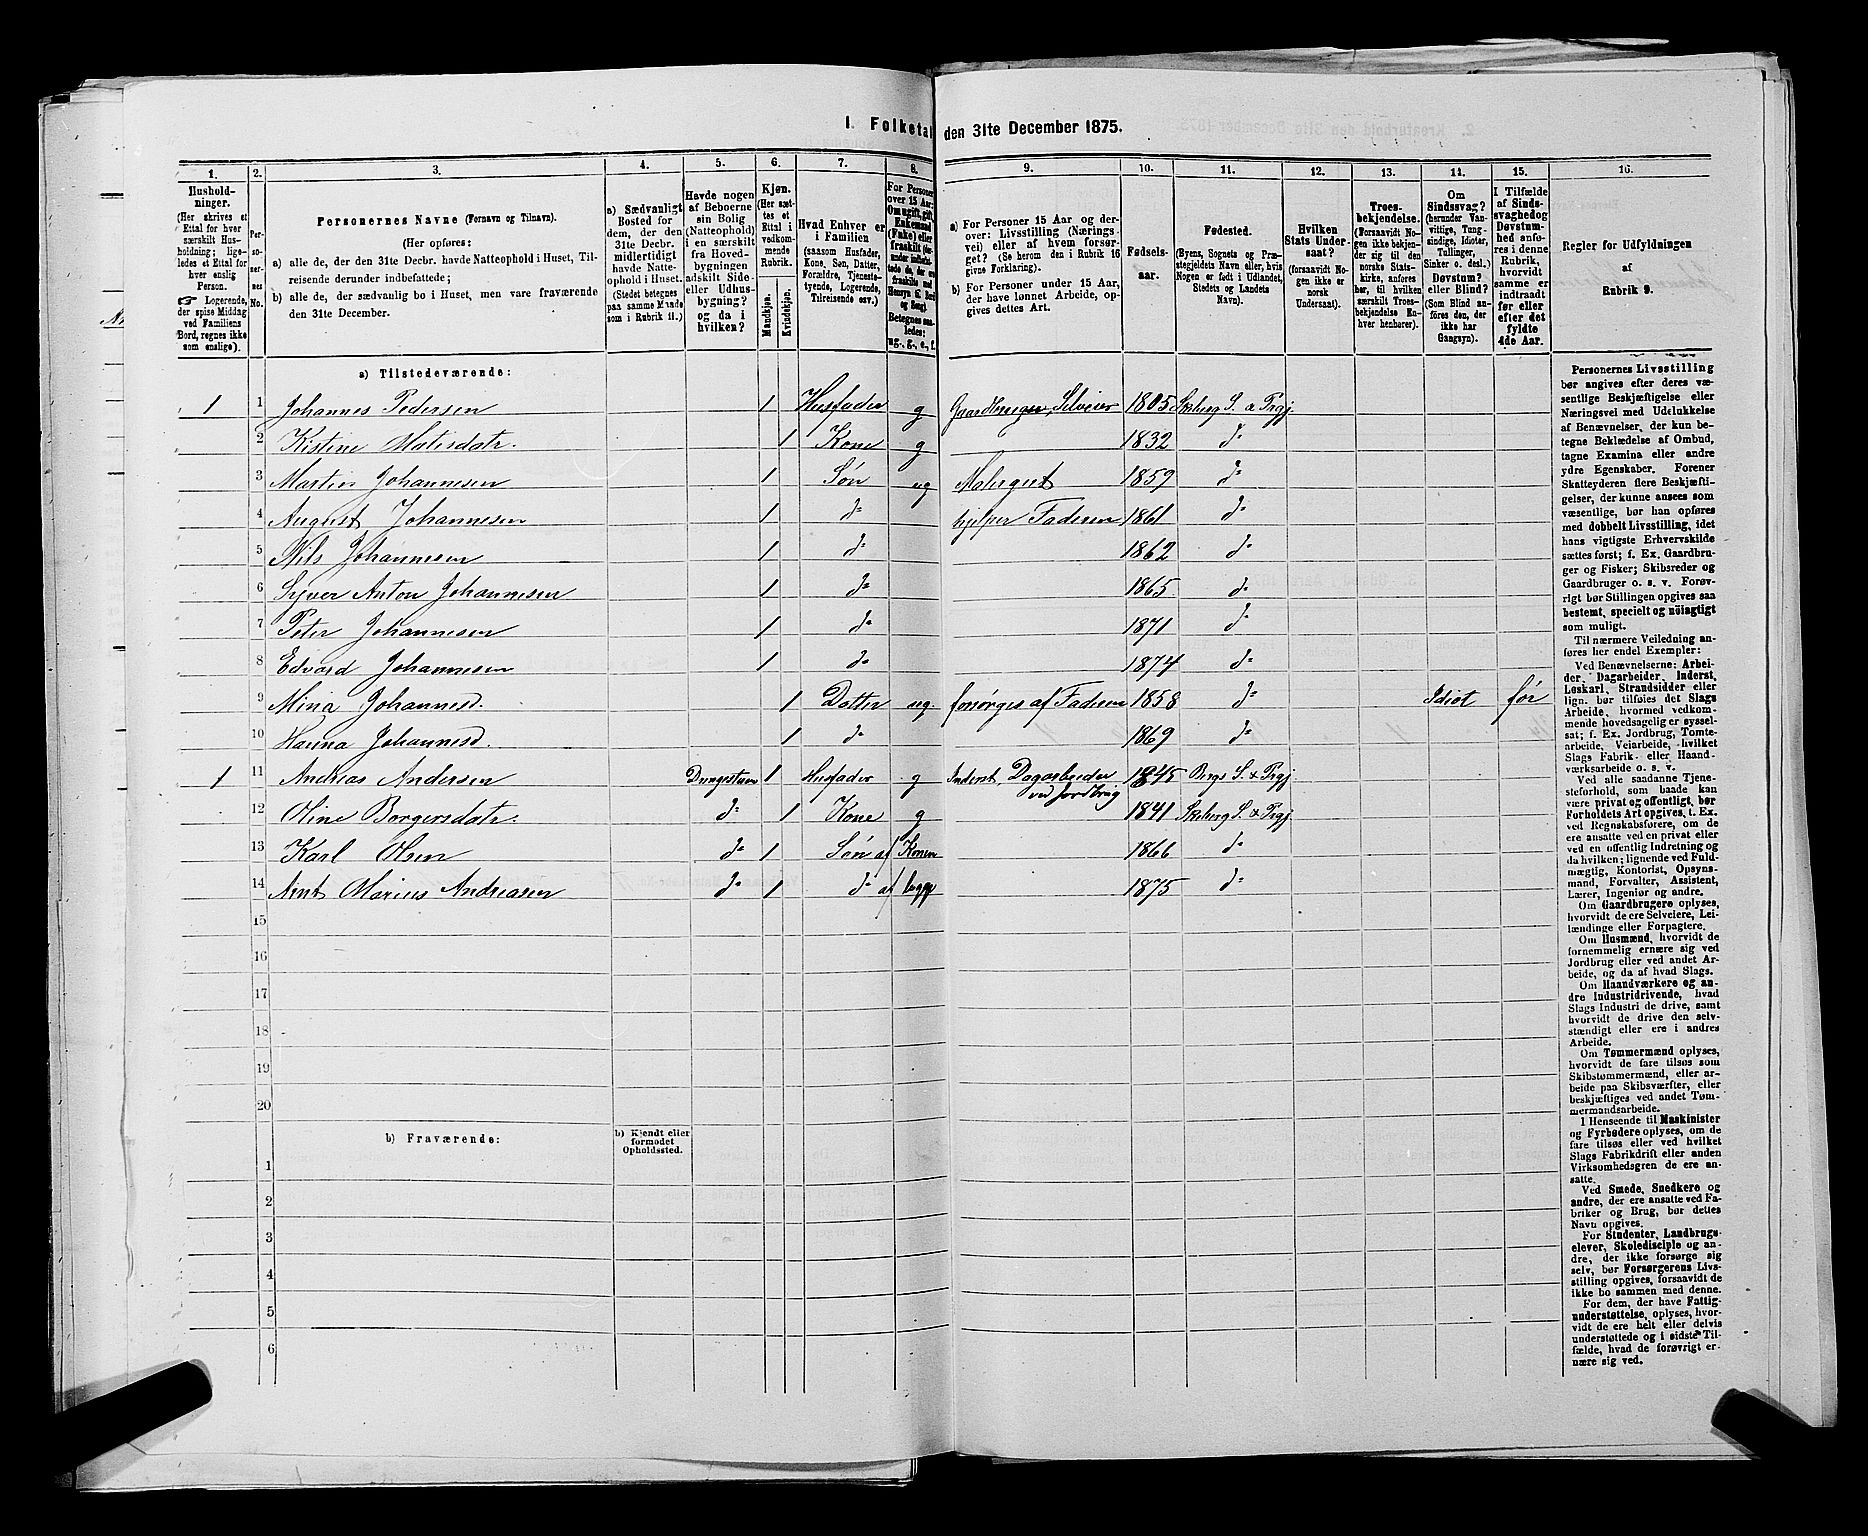 1. Folketal den 31te December 1875.
1. 2. 3. 4. 5. 6. 7. 8. 9. 10. 11. 12. 13. 14. 15. 16.
Hushold-
ninger.
(Her skrives et
Ettal for hver
særskilt Hus-
holdning; lige-
ledes et Ettal for
hver enslig
Person.
☞ Logerende,
der spise Middag
ved Familiens
Bord, regnes ikke
som enslige).
Per-
so-
ner-
nes
No.
Personernes Navne (Fornavn og Tilnavn).
(Her opføres:
a) alle de, der den 31te Decbr. havde Natteophold i Huset, Til-
reisende derunder indbefattede;
b) alle de, der sædvanlig bo i Huset, men vare fraværende
den 31te December.
a) Sædvanligt
Bosted for
dem, der den
31te Decbr.
midlertidigt
havde Natte-
ophold i Huset.
(Stedet betegnes
paa samme Maade
som i Rubrik 11.)
Havde nogen
af Beboerne
sin Bolig
(Natteophold)
i en særskilt
fra Hoved-
bygningen
adskilt Side-
eller Udhus-
bygning?
og da i
hvilken?
Kjøn.
(Her sæt-
tes et
Ettal i
vedkom-
mende
Rubrik.
Mandkjøn.
Kvindekjøn.
Hvad Enhver er
i Familien
(saasom Husfader,
Kone, Søn, Datter,
Forældre, Tjeneste-
tyende, Logerende,
Tilreisende osv.)
For Personer
over 15 Aar:
Om ugift, gift,
Enkemand
(Enke) eller
fraskilt
Betegnes saa-
ledes:
ug., g., e., f.
a) For Personer 15 Aar og der-
over: Livsstilling (Nærings-
vei) eller af hvem forsør-
get? (Se herom den i Rubrik 16
givne Forklaring).
b) For Personer under 15 Aar,
der have lønnet Arbeide, op-
gives dettes Art.
Fødsels-
aar.
Fødested.
(Byens, Sognets og Præ-
stegjeldets Navn eller, hvis
Nogen er født i Udlandet,
Stedets og Landets
Navn).
Hvilken
Stats Under-
saat?
(forsaavidt No-
gen ikke er
norsk
Undersaat).
Troes-
bekjendelse.
(Forsaavidt No-
gen ikke bekjen-
der sig til den
norske Stats-
kirke, anføres
her, til hvilken
særskilt Troes-
bekjendelse En-
hver henhører).
Om
Sindssvag?
(herunder Van-
vittige, Tung-
sindige, Idioter,
Tullinger,
Sinker o. desl.)
Døvstum?
eller Blind?
(Som Blind an-
føres den, der
ikke har
Gangsyn).
I Tilfælde
af Sinds-
svaghed og
Døvstum-
hed anfø-
res i denne
Rubrik,
hvorvidt
samme er
indtraadt
før eller
efter det
fyldte
4de Aar.
Regler for Udfyldningen
af
Rubrik 9.
a) Tilstedeværende:
1 1 Johannes Pedersen 1 Husfader g Gaardbruger, Selveier 1805 Skiberg S. a Prgj.
2 Kistine Matisdatr. 1 Kone g 1832 do
3 Martin Johannesen 1 Søn ug Malergut 1859 do
4 August Johannesen 1 do hjelper Faderen 1861 do
5 Nils Johannesen 1 do 1862 do
6 Syver Anton Johannesen 1 do 1865 do
7 Peter Johannesen 1 do 1871 do
8 Edvard Johannesen 1 do 1874 do
9 Mina Johannesd. 1 Datter ug. forsørges af Faderen 1858 do Idiot før
10 Hanna Johannesd. 1 do 1869 do
1 11 Andreas Andersen 1 Husfader g Inderst, Dagarbeider ved Jordbrug 1845 Bergs S. & Prgj
12 Oline Borgersdatr. do 1 Kone g 1841 Skiberg S. & Prgj.
13 Karl Olsen do 1 Søn af Konen 1866 do
14 Arnt Marius Andreasen do 1 do af begge 1875 do
15
16
17
18
19
20
b) Fraværende:
b) Kjendt eller
formodet
Opholdssted.
1
2
3
4
5
6
Personernes Livsstilling
bør angives efter deres væ-
sentlige Beskjæftigelse eller
Næringsvei med Udelukkelse
af Benævnelser, der kun be-
tegne Beklædelse af Ombud,
tagne Examina eller andre
ydre Egenskaber. Forener
Skatteyderen flere Beskjæfti-
gelser, der kunne ansees som
væsentlige, bør han opføres
med dobbelt Livsstilling, idet
hans vigtigste Erhvervskilde
sættes først; f. Ex. Gaardbru-
ger og Fisker; Skibsreder og
Gaardbruger o. s. v. Forøv-
rigt bør Stillingen opgives saa
bestemt, specielt og nöiagtigt
som muligt.
Til nærmere Veiledning an-
føres her endel Exempler:
Ved Benævnelserne: Arbei-
der, Dagarbeider, Inderst,
Løskarl, Strandsidder eller
lign. bør tilføies det Slags
Arbeide, hvormed vedkom-
mende hovedsagelig er syssel-
sat; f. Ex. Jordbrug, Tomte-
arbeide, Veiarbeide, hvilket
Slags Fabrik- eller Haand-
værksarbeide o. s. v.
Ved alle saadanne Tjene-
steforhold, som baade kan
være privat og offentligt, bør
Forholdets Art opgives, f. Ex.
ved Regnskabsførere, om de
ere ansatte ved en privat eller
ved en offentlig Indretning og
da hvilken; lignende ved Fuld-
mægtig, Kontorist, Opsyns-
mand, Forvalter, Assistent,
Lærer, Ingeniør og andre.
Om Gaardbrugere oplyses,
hvorvidt de ere Selveiere, Lei-
lændinge eller Forpagtere.
Om Husmænd, hvorvidt de
fornemmelig ernære sig ved
Jordbrug eller ved andet Ar-
beide, og da af hvad Slags.
Om Haandværkere og an-
dre Industridrivende, hvad
Slags Industri de drive, samt
hvorvidt de drive den selv-
stændigt eller ere i andres
Arbeide.
Om Tømmermænd oplyses,
hvorvidt de fare tilsøs som
Skibstømmermænd, eller ar-
beide paa Skibsværfter, eller
beskjæftiges ved andet Tøm-
mermandsarbeide.
I Henseende til Maskinister
og Fyrbødere oplyses, om de
fare tilsøs eller ved hvilket
Slags Fabrikdrift eller anden
Virksomhedsgren de ere an-
satte.
Ved Smede, Snedkere og
andre, der ere ansatte ved Fa-
briker og Brug, bør dettes
Navn opgives.
For Studenter, Landbrugs-
elever, Skoledisciple og an-
dre, der ikke forsørge sig
selv, bør Forsørgerens Livs-
stilling opgives, forsaavidt de
ikke bo sammen med denne.
For dem, der have Fattig-
understøttelse, oplyses, hvor-
vidt de ere helt eller delvis
understøttede og i sidste Til-
fælde, hvad de forøvrigt er-
nære sig ved.